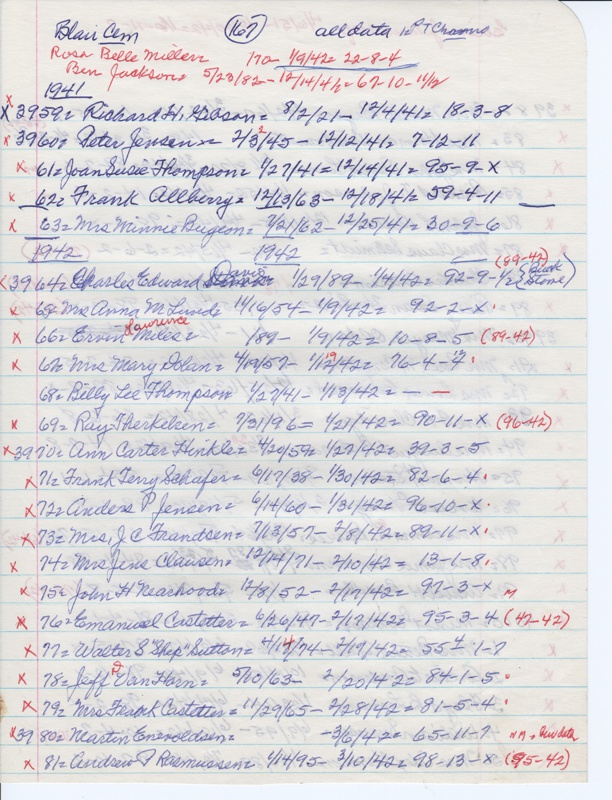 Blair Cem (167) all data in P T Chrons
Rosa Belle Miller= 170- 1/9/42= 22-8-4
Ben Jackson= 5/23/82- 12/14/42= 67-10-11/12
1941
x 3959= Richard H. Gibson= 8/2/21- 12/4/41= 18-3-8
x 3960= Peter Jensen= 2/3/45- 12/12/41= 7-12-11
x 61= Joan Susie Thompson= 1/27/41= 12/14/41= 95-9-x
x 62= Frank Allberry= 12/13/63- 12/18/41= 59-4-11
x 63= Mrs Minnie Bugeon= 7/21/62- 12/25/41= 30-9-6
1942 -1942 (89-42)
x 3964= Charles Edward Davis 1/29/89- 1/4/42= 92-9-1/2 (Stone)
x 65= Mrs Anna M Lund= 11/16/54- 1/9/42= 92-2-x
x 66= Ervin Lawrence Miles= /89- 1/9/42= 10-8-5 (89-42)
x 67= Mrs Mary Dolan= 4/19/57- 1/12/42= 76-4-12
68= Billy Lee Thompson 1/27/41- 1/13/42= — —
x 69= Ray Therkelsen= 7/31/96= 1/21/42= 90-11-x (96-42)
x 3970= Ann Carter Hinkle= 4/20/59= 1/27/42= 39-3-5
x 71= Frank Terry Schafer= 6/17/38- 1/30/42= 82-6-4
x 72= Anders P Jensen= 6/14/60- 1/31/42= 96-10-x
x 73= Mrs, J C Frandsen= 7/13/57- 2/8/42= 89-11-x
x 74= Mrs Jens Clausen= 12/14/71- 2/10/42= 13-1-8
x 75= John H Nearhood= 12/8/52- 2/17/42= 97-3-x M
x 76= Emanuel Castetter= 6/26/47- 2/17/42= 95-3-4 (47-42)
x 77= Walter S "Shep" Sutton= 4/14/74- 2/19/42= 55 4 1-7
x 78= Jeff D Van Horn= 5/10/63- 2/20/42= 84-1-5
x 79= Mrs Frank Castetter= 11/29/65- 2/28/42= 81-5-4
x 3980= Martin Enevoldsen= -3/6/42= 65-11-7 x M = New data
x 81= Andrew P Rasmussen= 1/14/95- 3/10/42= 98-13-x (95-42)